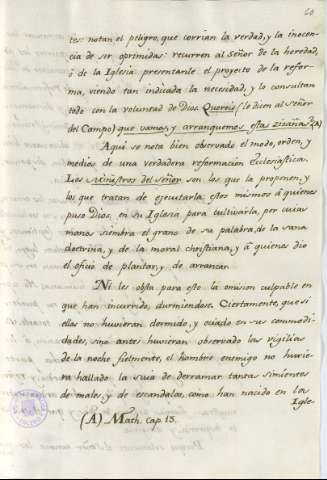 60
tes: notan el peligro, que corrian la verdad, y la inocen-
cia de ser oprimidas: recurren al Señor de la heredad,
ó de la Iglesia: presentanle el proyecto de la refor-
ma, viendo tan indicada la necesidad, y lo consultan
todo con la voluntad de Dios. Quereis (le dicen al Señor
del Campo) que vamos, y arranquemos estas zizañas? (A)
Aqui se nota bien observado el modo, orden, y
medios de una verdadera reformacion Eclesiastica.
Los Ministros del Señor son los que la proponen, y
los que tratan de executarla: estos mismos á quienes
puso Dios, en su Iglesia para cultivarla, por cuias
manos siembra el grano de su palabra, de la sana
doctrina, y de la moral christiana, y á quienes dio
el oficio de plantar, y de arrancar.
Ni les obsta para esto la omision culpable en
que han incurrido, durmiendose. Ciertamente, que si
ellos no huvieran dormido, y ociado en sus commodi-
dades, sino antes huvieran observado las vigilias
de la noche fielmente, el hombre enemigo no huvie-
ra hallado la suia de derramar tantas simientes
de males, y de escandalos, como han nacido en la
Igle-
(A) Math. cap 13.